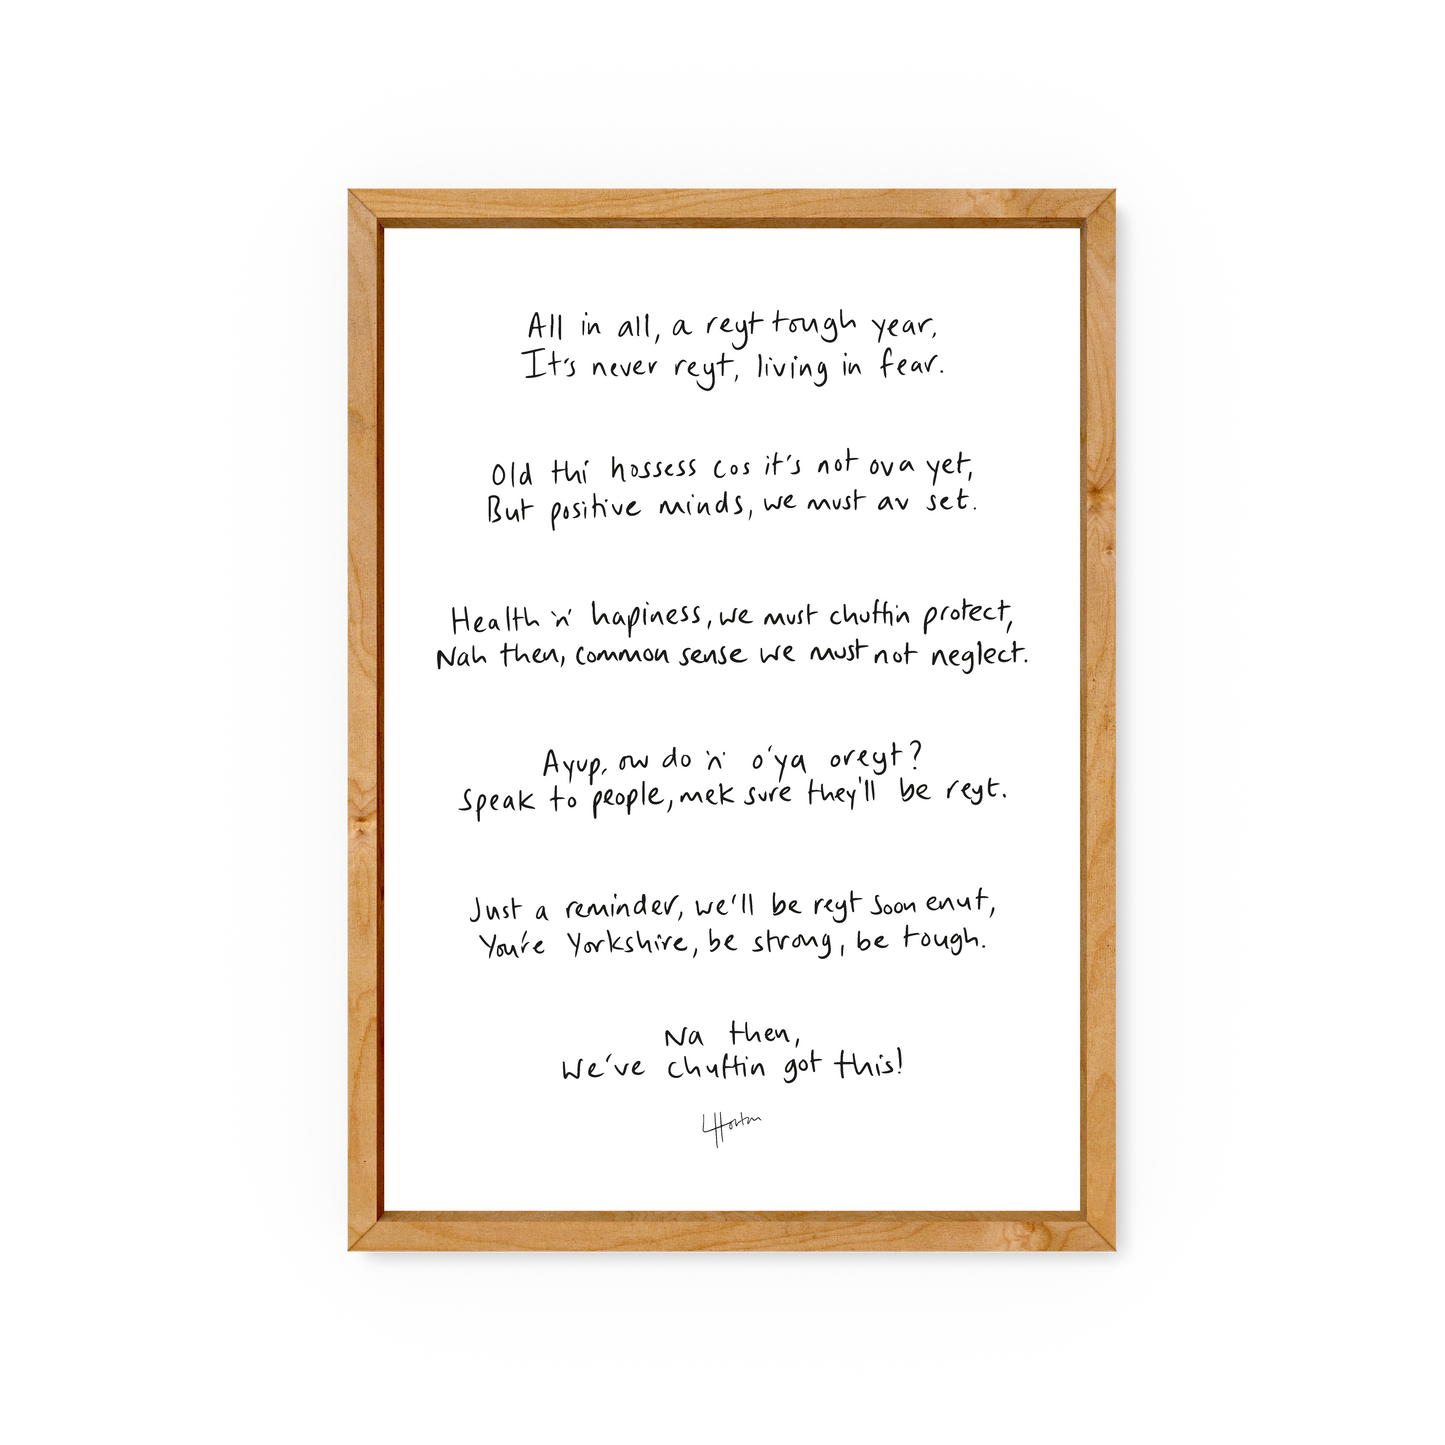 All in all, a reyt tough year,
It's never reyt, living in fear.
Old thi hossess cos it's not ova yet,
But positive minds, we must av set.
Health 'n' hapiness, we must chuffin protect,
Nah then, common sense we must not neglect.
Ayup, ow do 'n' o'ya oreyt?
Speak to people, mek sure they'll be reyt.
Just a reminder, we'll be reyt soon enuf,
You're Yorkshire, be strong, be tough.
Na then,
We've chuffin got this!
LHorton